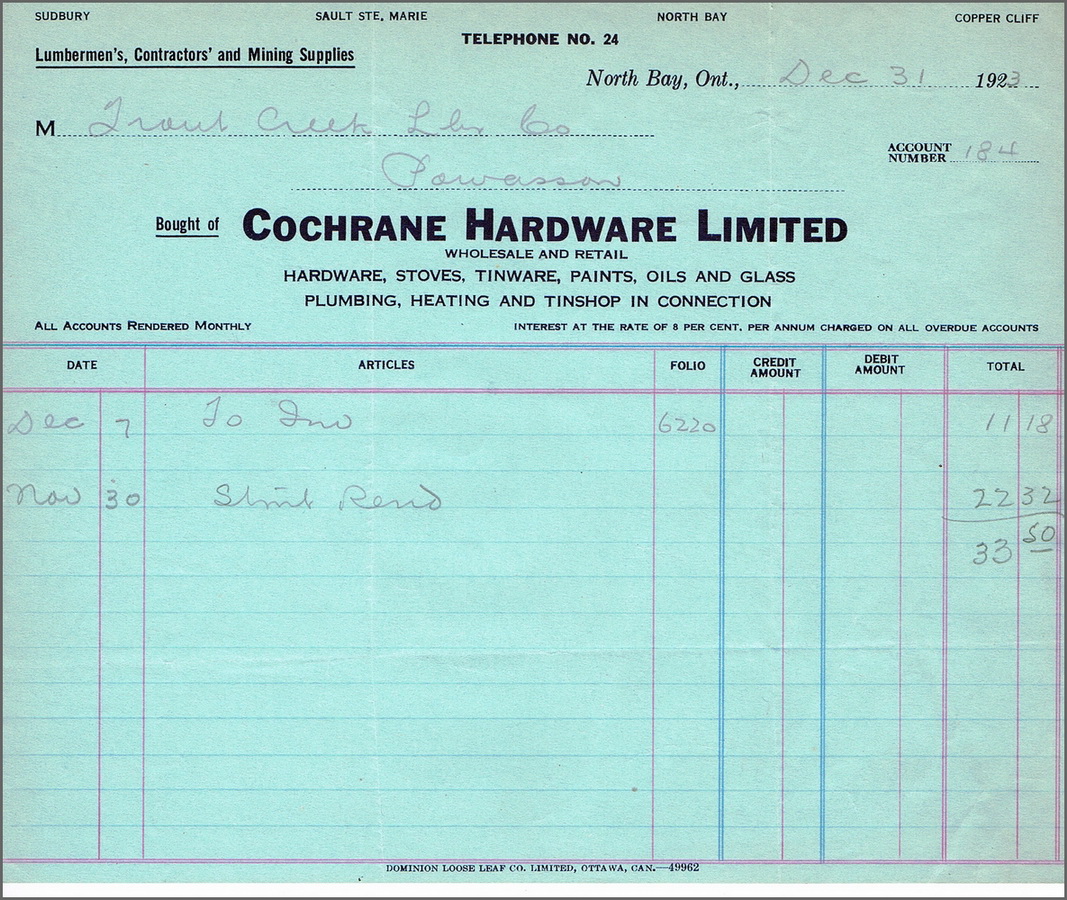 SUDBURY SAULT STE. MARIE NORTH BAY COPPER CLIFF
TELEPHONE NO. 24
Lumbermen's, Contractors' and Mining Supplies
North Bay, Ont., Dec 31 1923
M Trout Creek Lbr Co
ACCOUNT NUMBER 184
Powassan
Bought of COCHRANE HARDWARE LIMITED
WHOLESALE AND RETAIL
HARDWARE, STOVES, TINWARE, PAINTS, OILS AND GLASS
PLUMBING, HEATING AND TINSHOP IN CONNECTION
ALL ACCOUNTS RENDERED MONTHLY INTEREST AT THE RATE OF 8 PER CENT. PER ANNUM CHARGED ON ALL OVERDUE ACCOUNTS
DATE ARTICLES FOLIO CREDIT AMOUNT DEBIT AMOUNT TOTAL
Dec 7 To Inv 6220 11 18
Nov 30 Stmt Rend 22 32
33 50
DOMINION LOOSE LEAF CO. LIMITED, OTTAWA, CAN.—49962